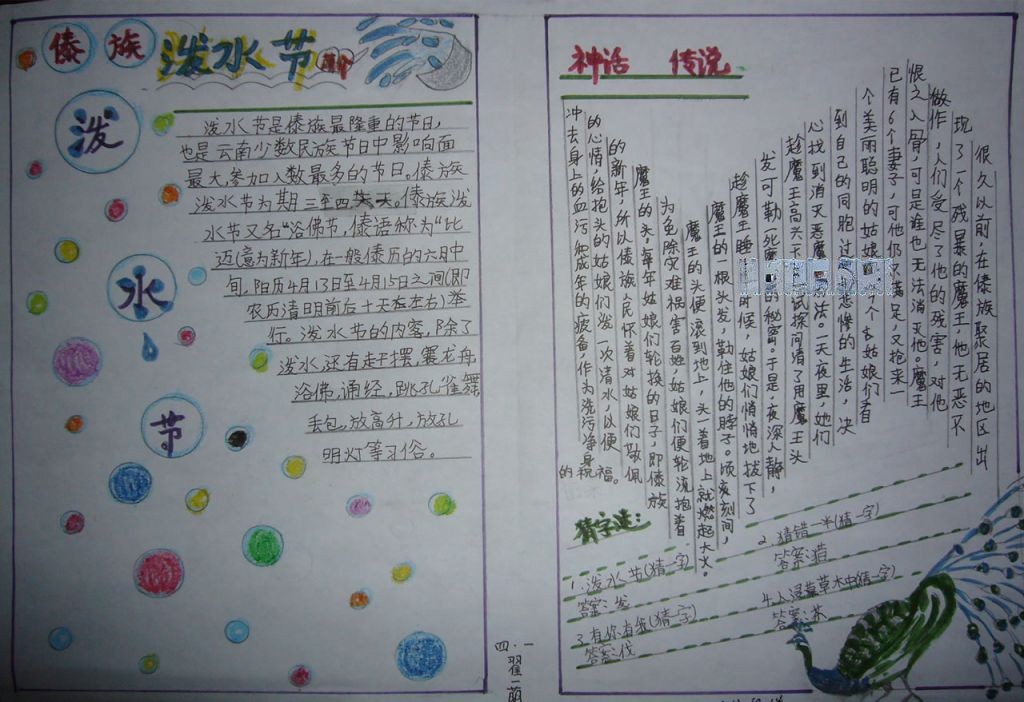 傣族泼水节简介
泼
水
节
泼水节是傣族最隆重的节日,
也是云南少数民族节日中影响面
最大,参加人数最多的节日,傣族
泼水节为期三至四天。傣族泼
水节又名“浴佛节,傣语称为“比
迈(意为新年),在一般傣历的六月中
旬,阳历4月13日至4月15日之间(即
农历清明前后十天左右)举
行。泼水节的内容,除了
泼水,还有赶摆,赛龙舟
浴佛,诵经,跳孔雀舞
丢包,放高升,放孔
明灯等习俗。
神话 传说
很久以前,在傣族聚居的地区出
现了一个残暴的魔王,他无恶不
做作,人们受尽了他的残害,对他
恨之入骨,可是谁也无法消灭他。魔王
已有6个妻子,可他仍不满足,又抢来一
个美丽聪明的姑娘
姑娘们看
到自己的同胞过
悲惨的生活,决
心找到消灭恶魔
法。一天夜里,她们
趁魔王高兴
试探问清了用魔王头
发可勒
死
的秘密。于是,夜深人静,
趁魔王睡
时候,姑娘们悄悄地拔下了
魔王的一根头发,勒住他的脖子。顷刻间,
魔王的头便滚到地上,头一着地上就燃起大火。
为免除灾难祸害百姓,姑娘们便轮流抱着
魔王的头,每年姑娘们轮换的日子,即傣族
的新年,所以傣族人民怀着对姑娘们敬佩
的心情,给抱头的姑娘们泼一次清水,以便
冲去身上的血污和成年的疲备,作为洗污净身
的祝福。
猜字迷:
1.泼水节(猜一字)
答案:发
2.猜错一半(猜一字)
答案:猎
3.有你有我(猜一字)
答案:伐
4.人浸草木中(猜一字)
答案:茶
四.一
翟一萌